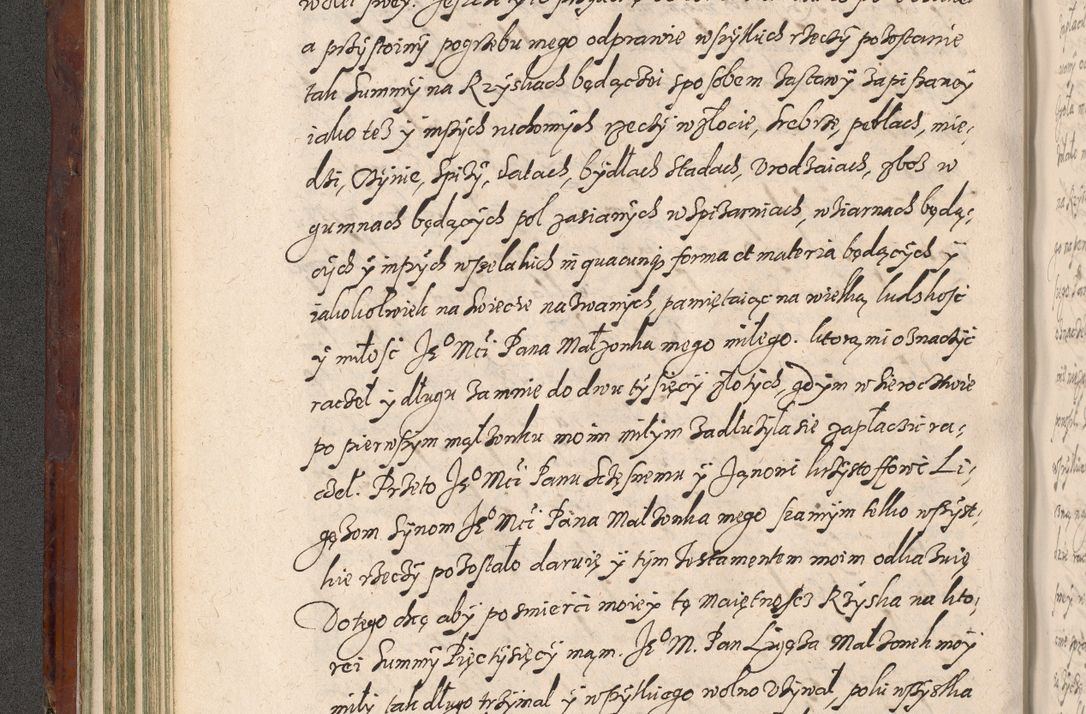 a przystoiny pogrzebu mego odprawie wszytkich rzeczy pozostanie
tak Summy na Rzyskach będączei sposobem zastawy zapiszaney
iako też y inszych ruchomych rzeczy w złocie, srebrze, perłach, mie,
dzi, Cynie, Spiży, Szatach, bydłach stadach, Vrodzaiach, zboż w
gumnach będących pol zasianych w spiżarniach, w ziarnach będą,
cych y inszych wszelakich in quacunq forma et materia będących y
iakokolwiek na swiecie nazwanych, pamiętaiąc na wielką ludzkość
y miłość Je° Mci Pana Małzonka mego miłego. ktorą mi oznaczyć
raczeł y długu zamnie do dwu tysięcy złotych, gdym w sieroctwie
po pierwszym małzonku moim miłym zadłużyła sie zapłaczic ra,
czeł. Przeto Je° Mci Panu Sczęsnemu y Janowi krzystoffowi Li,
gęzom Synom Je° Mci Pana Małzonka mego szamym telko wszyst,
kie rzeczy pozostało daruię y tym Testamentem moim odkazuię
Do tego chcę aby po smierci moiey tę Maiętność Rzyska na kto,
rei Summy Pięc tysięcy mąm. Je° M. Pan Ligęza Małzonek moy
miły tak długo trzymał y wszytkiego wolno vżywał, poki wszystka